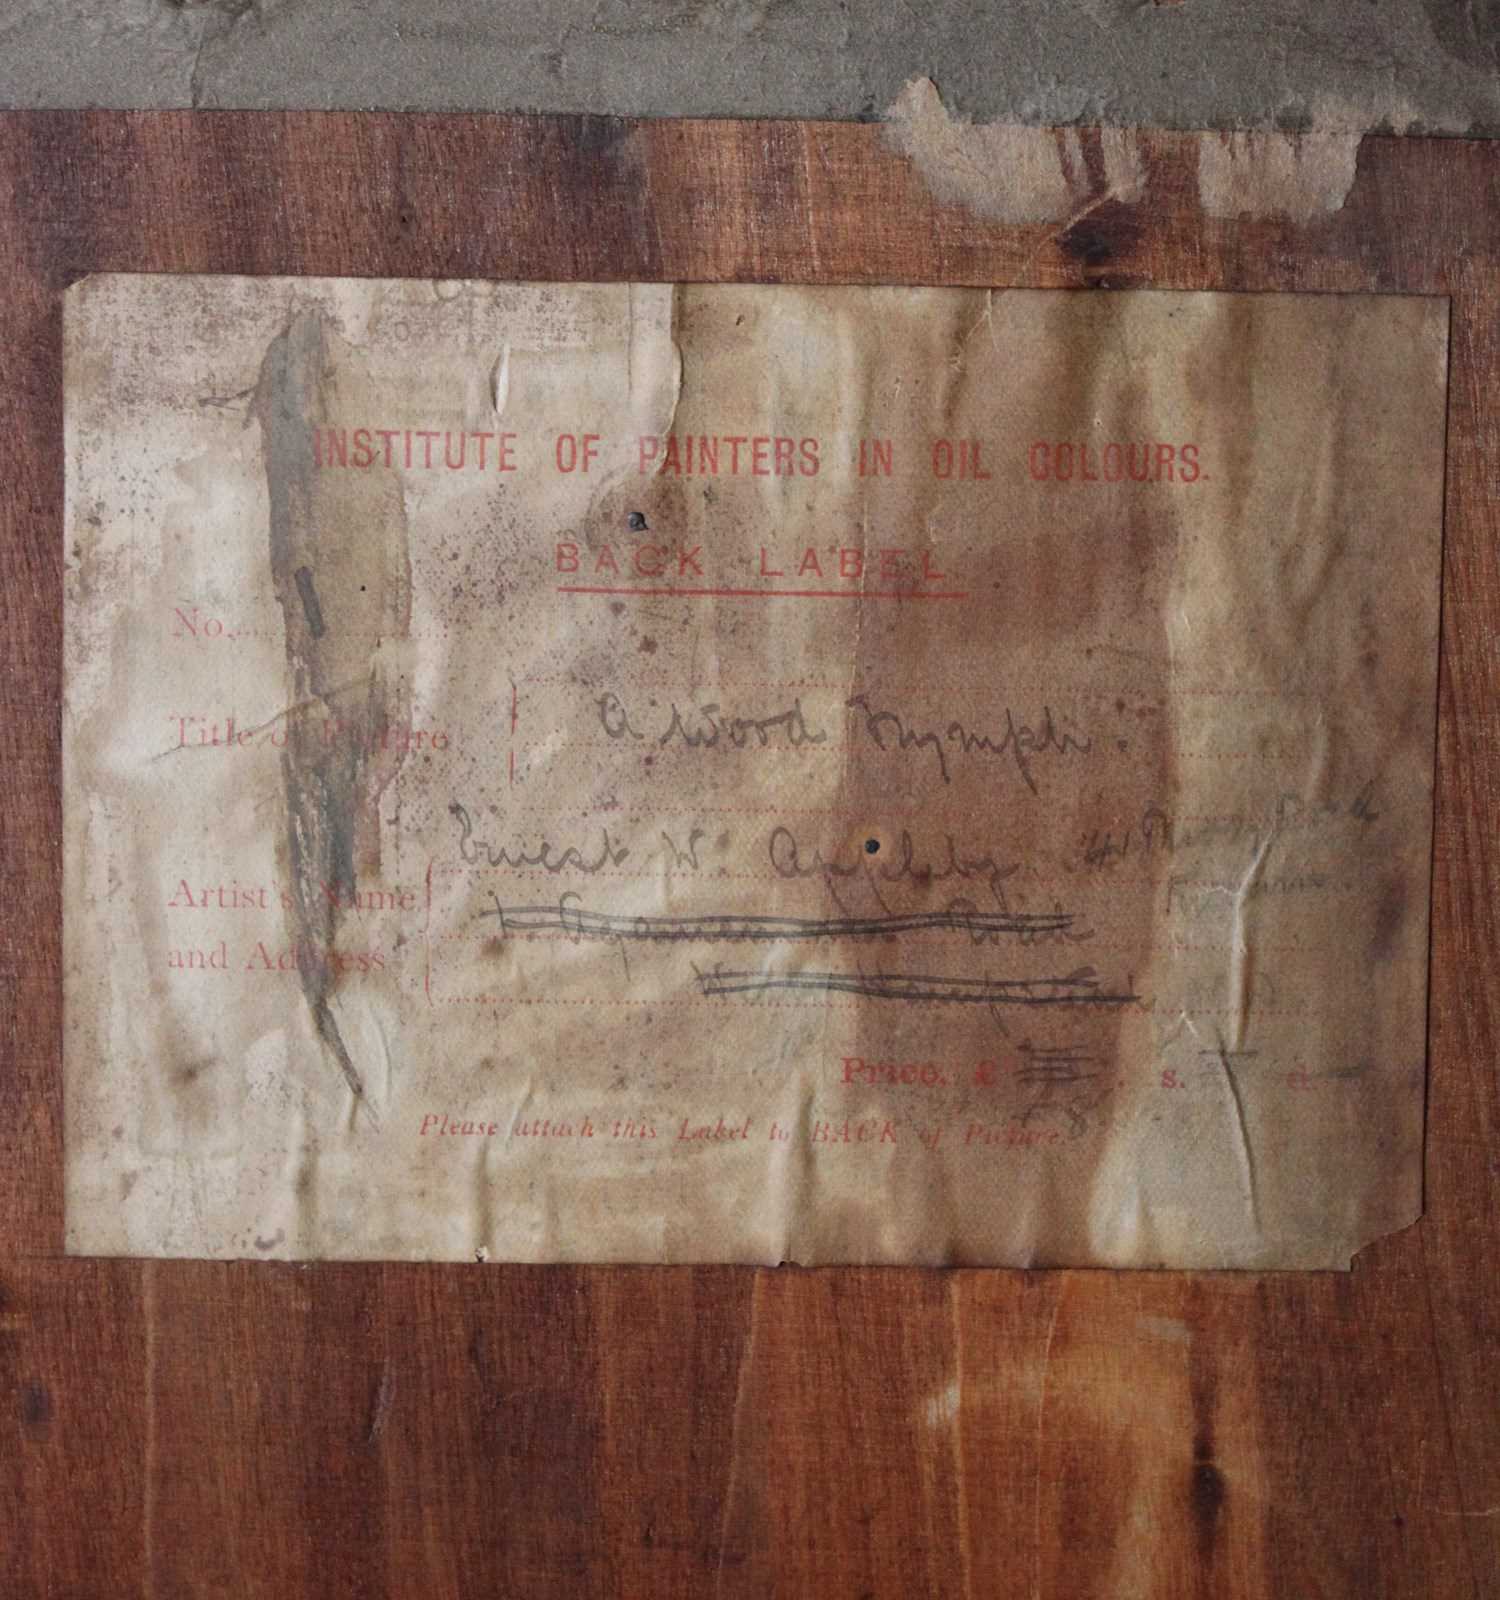 INSTITUTE OF PAINTERS IN OIL COLOURS.
BACK LABEL
No.
Title of Picture
A Wood Nymph.
Ernest W. Appleby 41
Artist's Name
and Address
Price. £ s. d.
58
Please attach this Label to BACK of Picture.